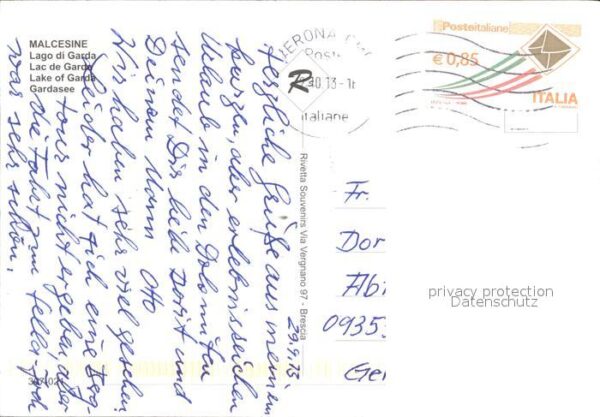 MALCESINE
Lago di Garda
Lac de Garde
Lake of Garda
Gardasee
VERONA
Poste
R
.10.13-1
italiane
Posteitaliane
€ 0,85
ITALIA
29.9.13
Herzliche Grüße aus meinem
kurzen, aber erlebnisreichen
Urlaub in den Dolomiten
sendet Dir liebe Dorit und
Deinem Mann Otto
Wir haben sehr viel gesehen.
Leider hat sich eine
tour nicht ergeben aber
die Fahrt zum Sella-Joch
war sehr schön.
Rivetta Souvenirs Via Vergnano 97 - Brescia
Fr.
Dor
Abt
0935
Ger
privacy protection
Datenschutz